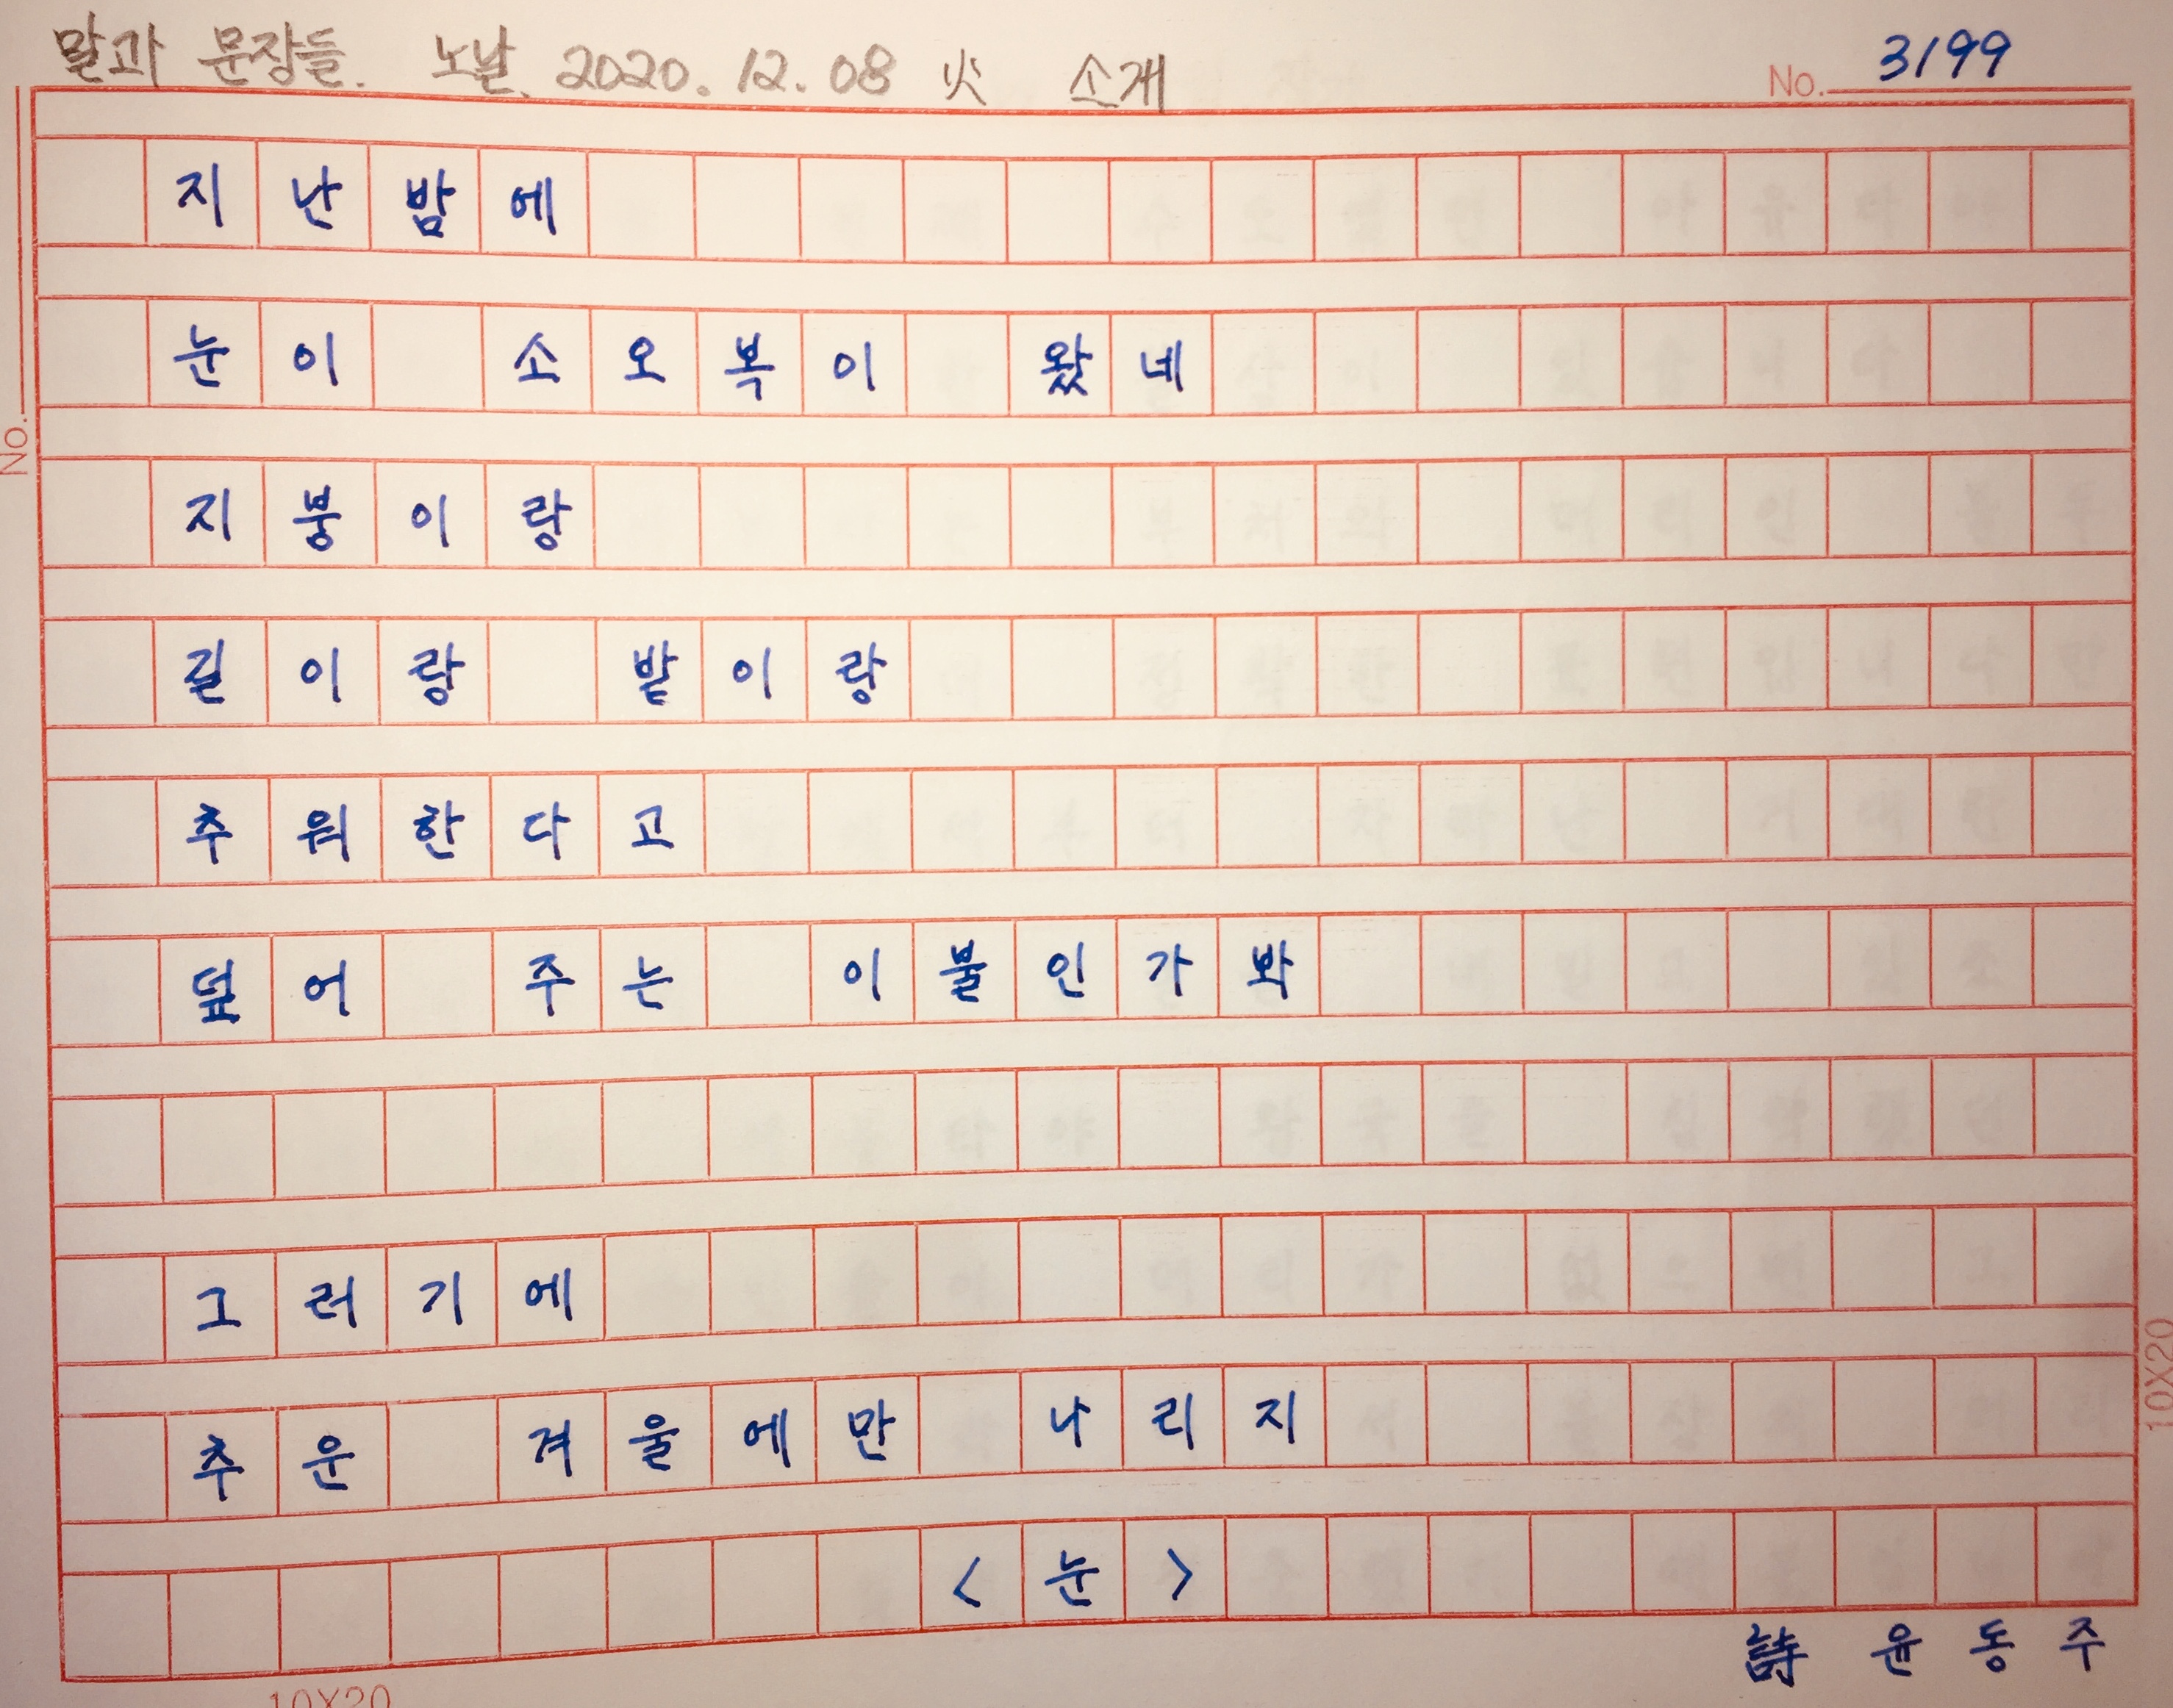 말과 문장들. 노날. 2020. 12. 08 火 소개
No. 3199
지난밤에
눈이 소오복이 왔네
지붕이랑
길이랑 밭이랑
추워한다고
덮어 주는 이불인가봐
그러기에
추운 겨울에만 나리지
<눈>
詩 윤동주
No.
10X20
10X20